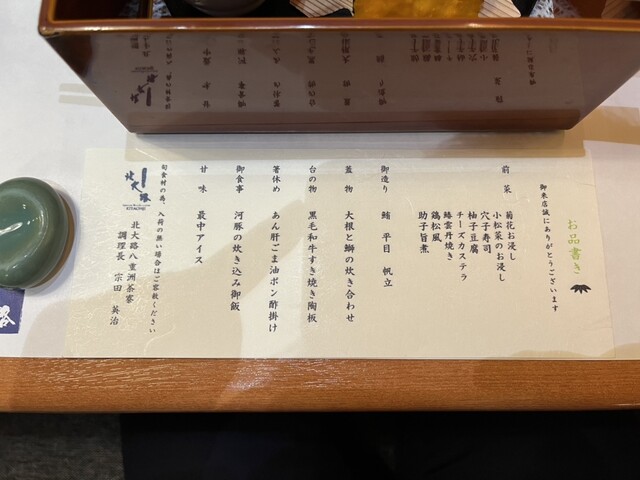 お品書き
御来店誠にありがとうございます
前菜 菊花お浸し
小松菜のお浸し
穴子寿司
柚子豆腐
チーズカステラ
鮑雲丹焼き
鶏松風
助子旨煮
御造り 鮪 平目 帆立
蓋物 大根と鰤の炊き合わせ
台の物 黒毛和牛すき焼き陶板
箸休め あん肝ごま油ポン酢掛け
御食事 河豚の炊き込み御飯
甘味 最中アイス
旬食材の為、入荷の無い場合はご容赦ください
北大路八重洲茶寮
調理長 宗田 英治
北大路